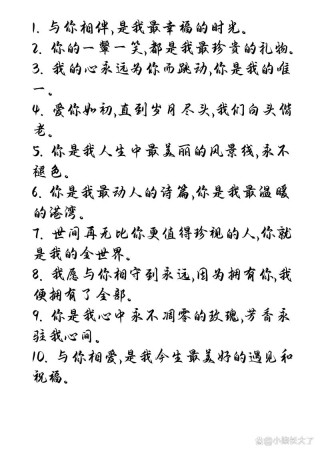 1. 与你相伴,是我最幸福的时光。
2. 你的一颦一笑,都是我最珍贵的礼物。
3. 我的心永远为你而跳动,你是我的唯
一。
4. 爱你如初,直到岁月尽头,我们白头偕
老。
5. 你是我人生中最美丽的风景线,永不
褪色。
6. 你是我最动人的诗篇,你是我最温暖
的港湾。
7. 世间再无比你更值得珍视的人,你就
是我的全世界。
8. 我愿与你相守到永远,因为拥有你,我
便拥有了全部。
9. 你是我心中永不凋零的玫瑰,芳香永
驻我心间。
10. 与你相爱,是我今生最美好的遇见和
祝福。